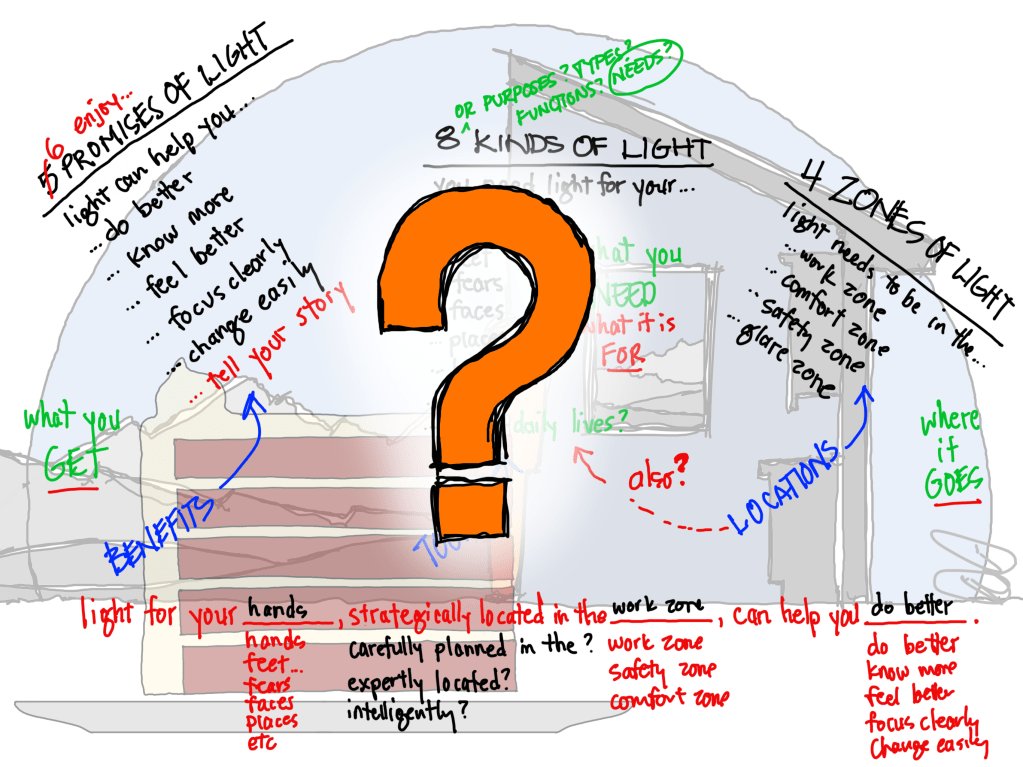 6 enjoy...
5 PROMISES OF LIGHT
light can help you...
...do better
... know more
... feel better
... focus clearly
...change easily
... tell your story
what you
GET
BENEFITS
OR PURPOSES? TYPES?
FUNCTIONS? NEEDS?
8 KINDS OF LIGHT
you need light for your...
feet
fears
faces
places
what you
NEED
what it is
FOR
daily lives?
also?
4 ZONES OF LIGHT
light needs to be in the...
... work zone
... comfort zone
... safety zone
... glare zone
LOCATIONS
where
it
GOES
light for your hands, strategically located in the work zone, can help you do better.
hands
feet...
fears
faces
places
etc
carefully planned in the ?
expertly located?
intelligently?
work zone
safety zone
comfort zone
do better
know more
feel better
focus clearly
change easily